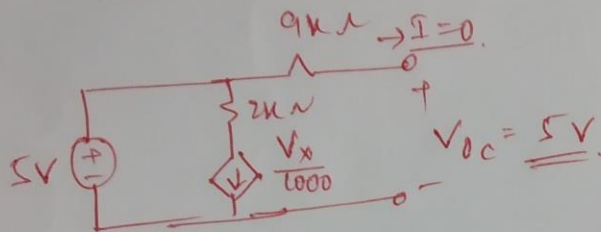 9KΩ → I=0
2KΩ
5V + -
Vx/1000
+
Voc = 5V
-